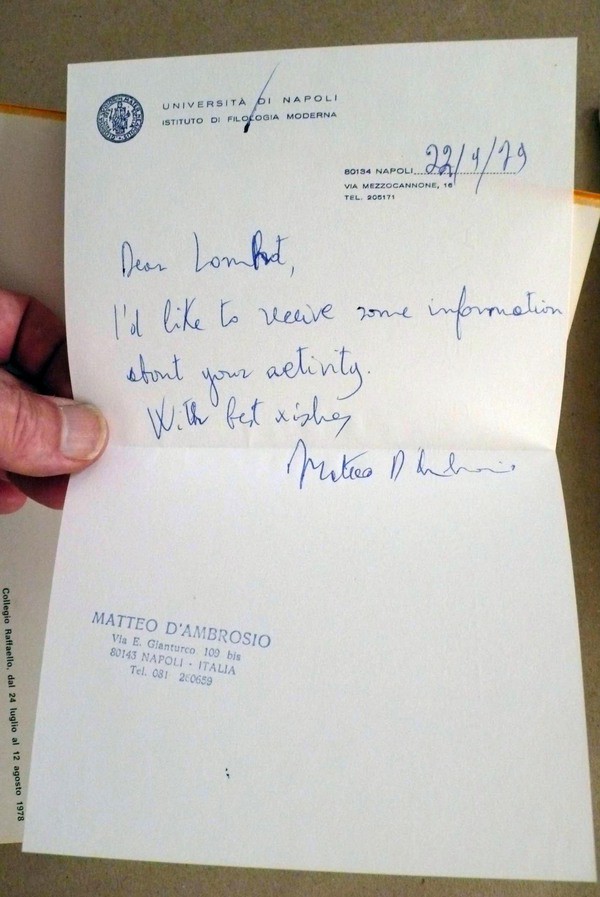 UNIVERSITÀ DI NAPOLI
ISTITUTO DI FILOLOGIA MODERNA
80134 NAPOLI 22/4/79
VIA MEZZOCANNONE, 16
TEL. 205171
Dear
I'd like to receive some information
about your activity.
With best wishes
Matteo D'Ambrosio
MATTEO D'AMBROSIO
Via E. Gianturco 109 bis
80143 NAPOLI - ITALIA
Tel. 081
Collegio Raffaello, dal 24 luglio al 12 agosto 1978